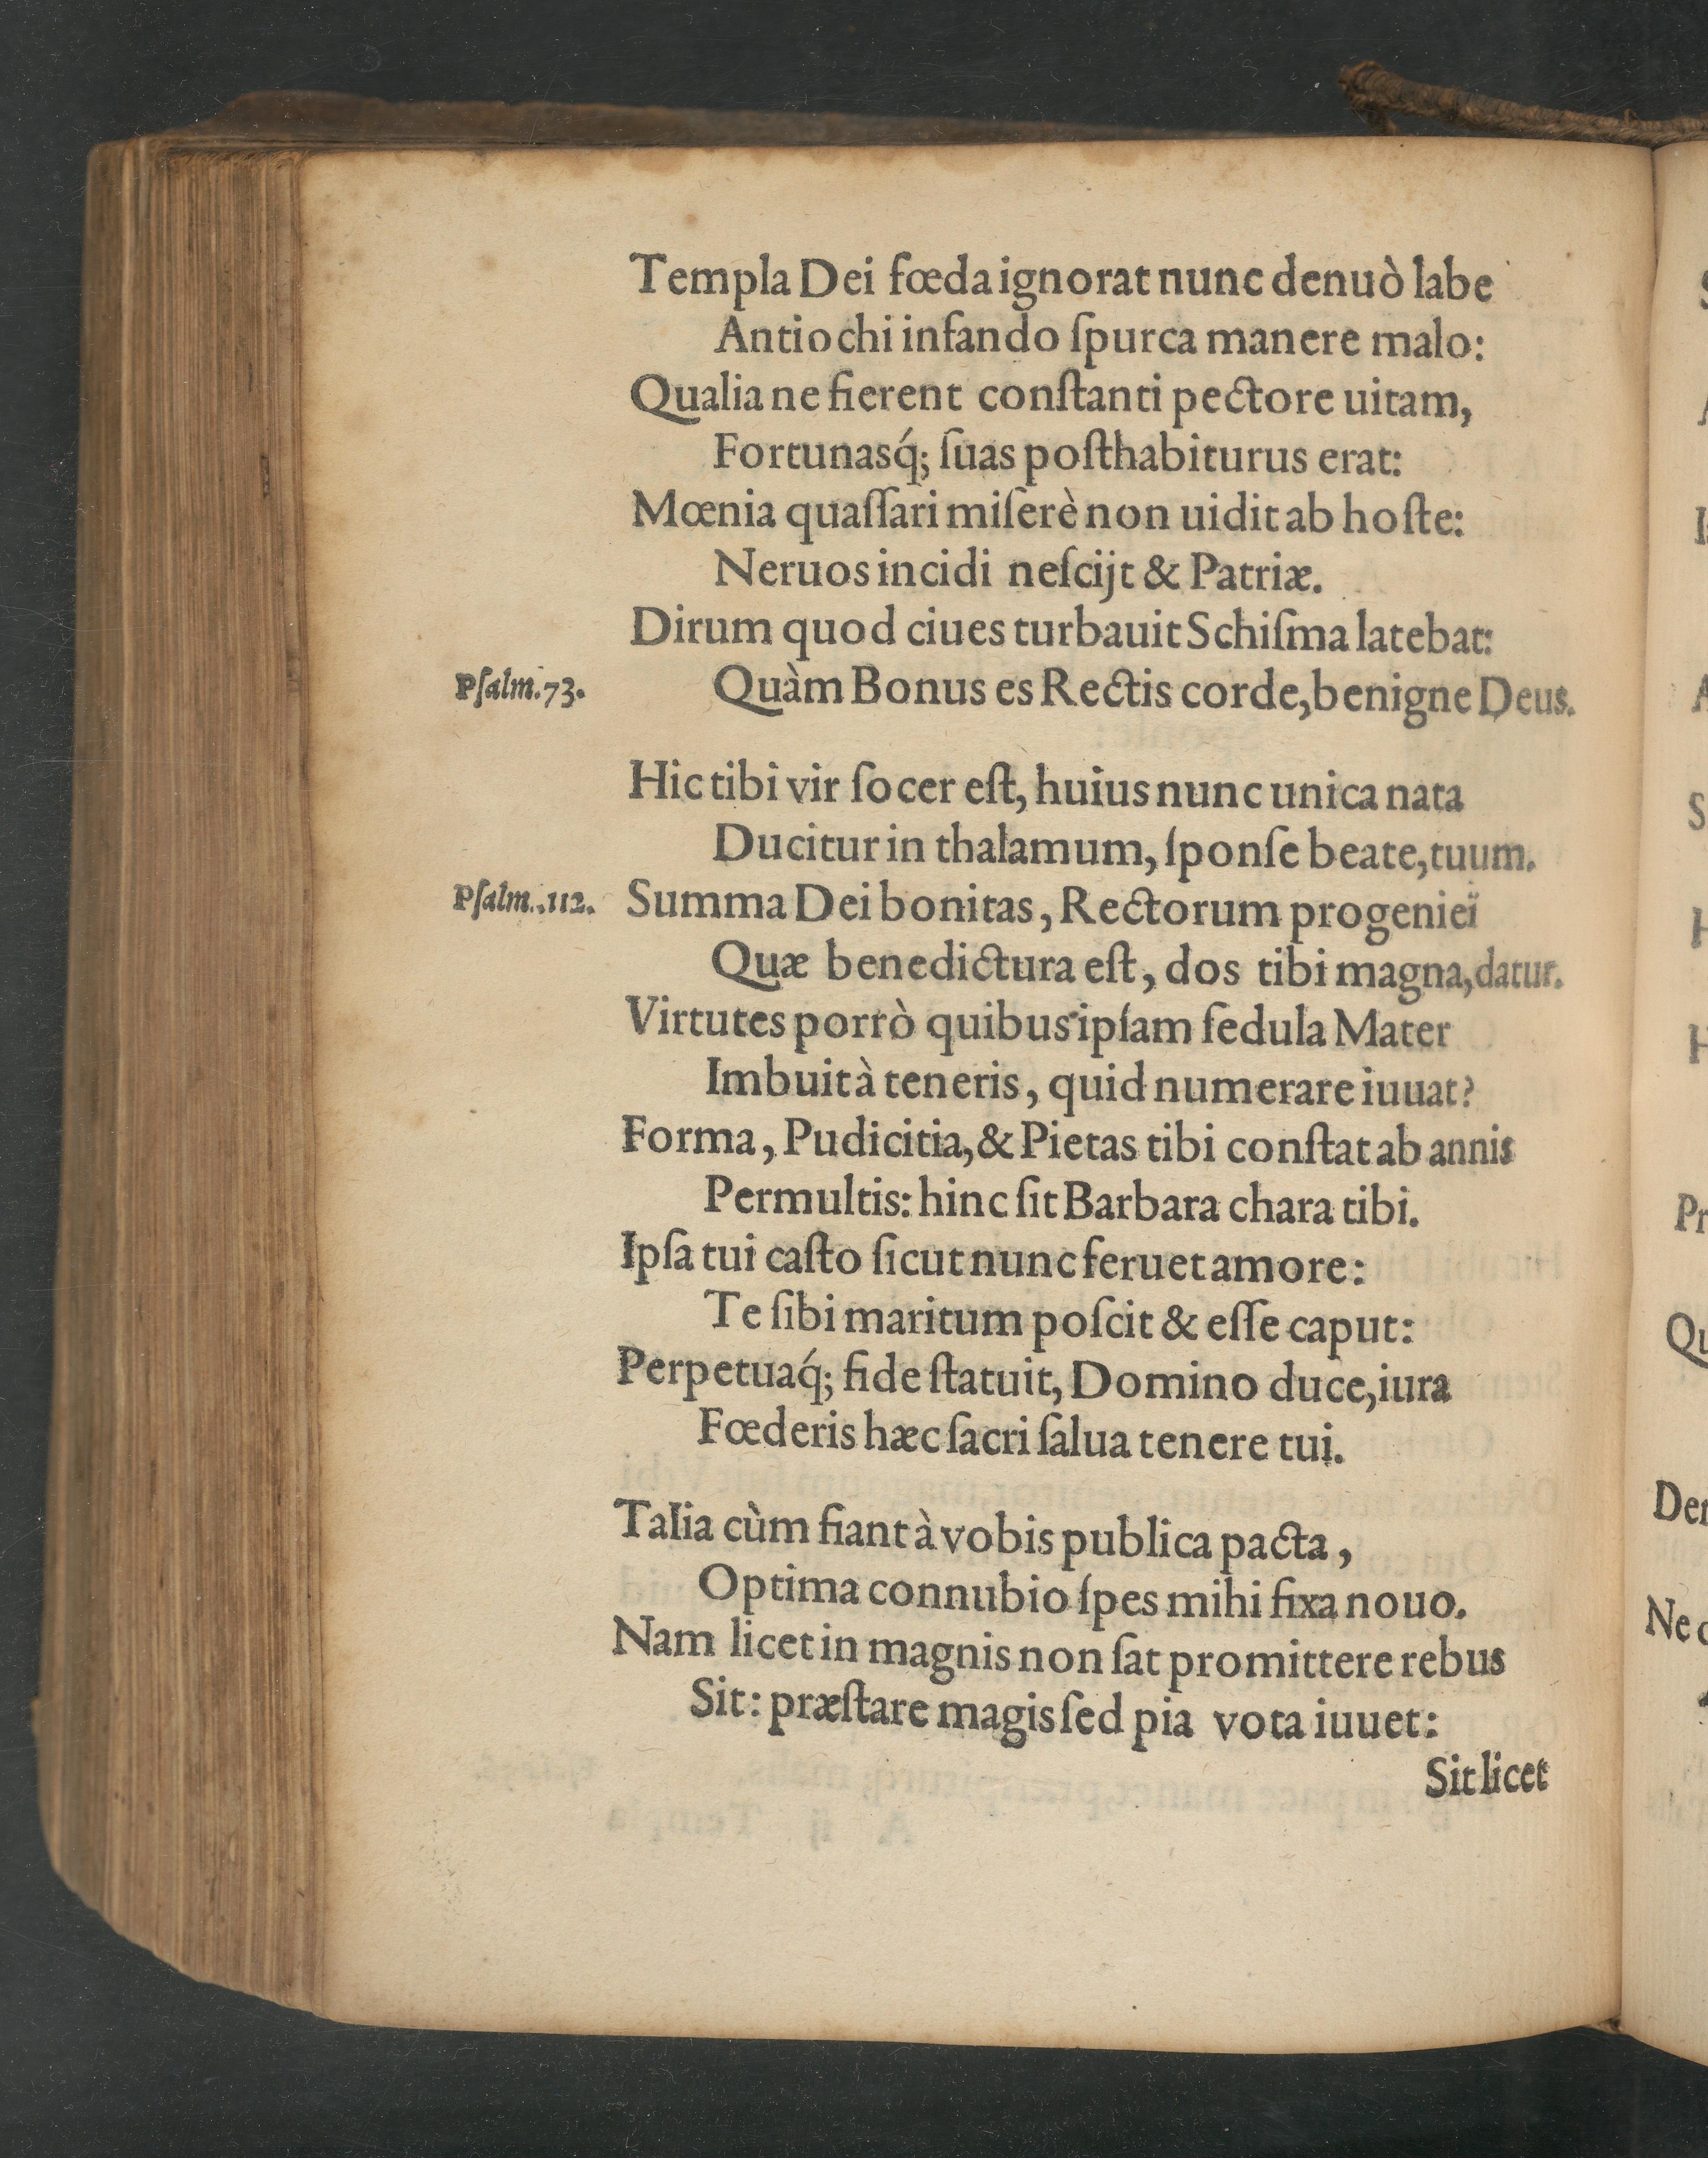 Templa Dei fœda ignorat nunc denuò labe
Antiochi infando ſpurca manere malo:
Qualia ne fierent conſtanti pectore uitam,
Fortunasq́; ſuas poſthabiturus erat:
Mœnia quaſſari miſerè non uidit ab hoſte:
Neruos incidi neſcijt & Patriæ.
Dirum quod ciues turbauit Schiſma latebat:
Pſalm. 73. Quàm Bonus es Rectis corde, benigne Deus.
Hic tibi vir ſocer eſt, huius nunc unica nata
Ducitur in thalamum, ſponſe beate, tuum.
Pſalm. 112. Summa Dei bonitas, Rectorum progeniei
Quæ benedictura eſt, dos tibi magna, datur.
Virtutes porrò quibus ipſam ſedula Mater
Imbuit à teneris, quid numerare iuuat?
Forma, Pudicitia, & Pietas tibi conſtat ab annis
Permultis: hinc ſit Barbara chara tibi.
Ipſa tui caſto ſicut nunc feruet amore:
Te ſibi maritum poſcit & eſſe caput:
Perpetuaq́; fide ſtatuit, Domino duce, iura
Fœderis hæc ſacri ſalua tenere tui.
Talia cùm fiant à vobis publica pacta,
Optima connubio ſpes mihi fixa nouo.
Nam licet in magnis non ſat promittere rebus
Sit: præſtare magis ſed pia vota iuuet:
Sit licet